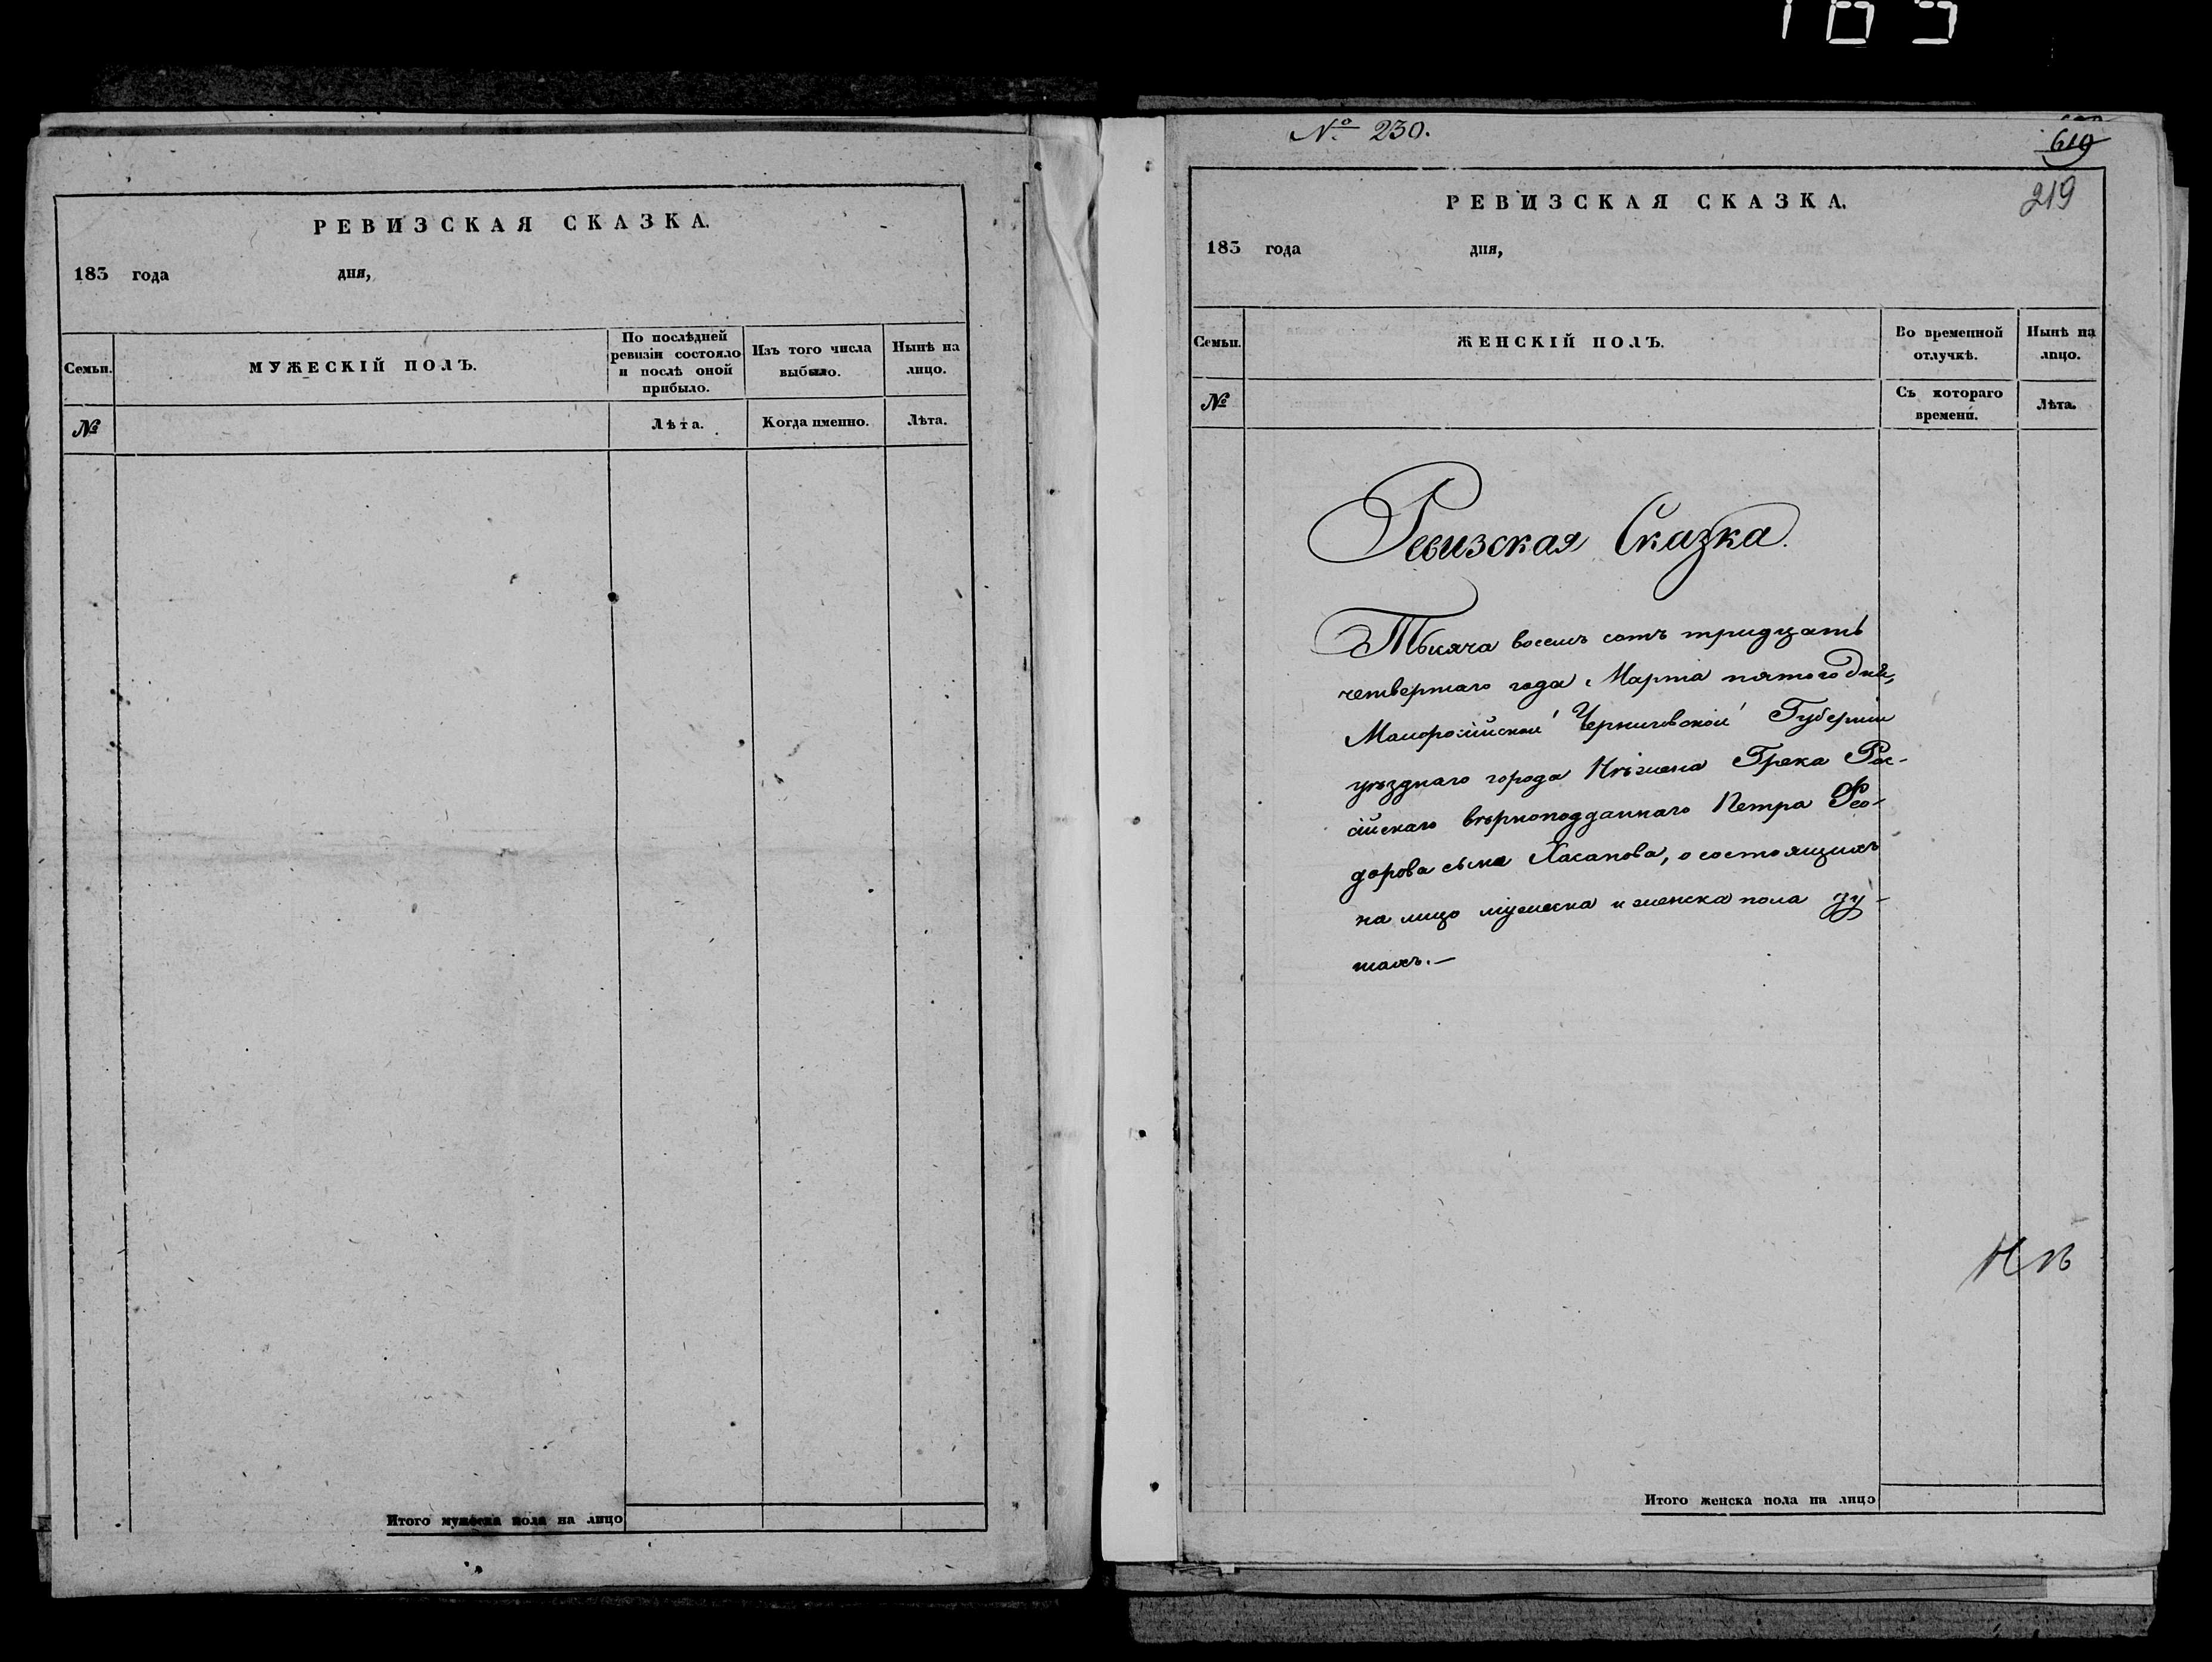 РЕВИЗСКАЯ СКАЗКА.
183 года дня,
Семьи.
МУЖЕСКІЙ ПОЛЪ.
По послѣдней
ревизіи состояло
и послѣ оной
прибыло.
Изъ того числа
выбыло.
Нынѣ на
лицо.
№
Лѣта.
Когда именно.
Лѣта.
Итого мужеска пола на лицо
№ 230.
619
219
РЕВИЗСКАЯ СКАЗКА.
183 года дня,
Семьи.
ЖЕНСКІЙ ПОЛЪ.
Во временной
отлучкѣ.
Нынѣ на
лицо.
№
Съ котораго
времени.
Лѣта.
Ревизская Сказка.
Тысяча восемъ сотъ тридцать
четвертаго года Марта пятого дня,
Малоросійской Черниговской Губерніи
уѣзднаго города Нѣжина Грека Рос-
сійскаго вѣрноподданнаго Петра Фео-
дорова сына Хасапова, о состоящихъ
на лицо мужеска и женска пола ду-
шахъ.—
Итого женска пола на лицо